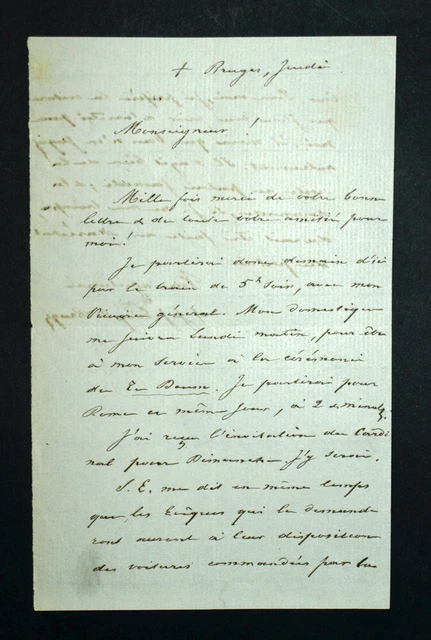 + Bruges, Jeudi
Monseigneur!
Mille fois merci de votre bonne
lettre & de toute votre amitié pour
moi!
Je partirai donc demain d'ici
par le train de 5h soir, avec mon
Vicaire général. Mon domestique
me suivra Lundi matin, pour être
à mon service à la cérémonie
de . Je partirai pour
Rome ce même jour, à 2
J'ai reçu l'invitation du Cardi
nal pour Dimanche. J'y serai.
S. E. me dit en même temps
que les Evêques qui le demande
ront auront à leur disposition
des voitures commandées par la